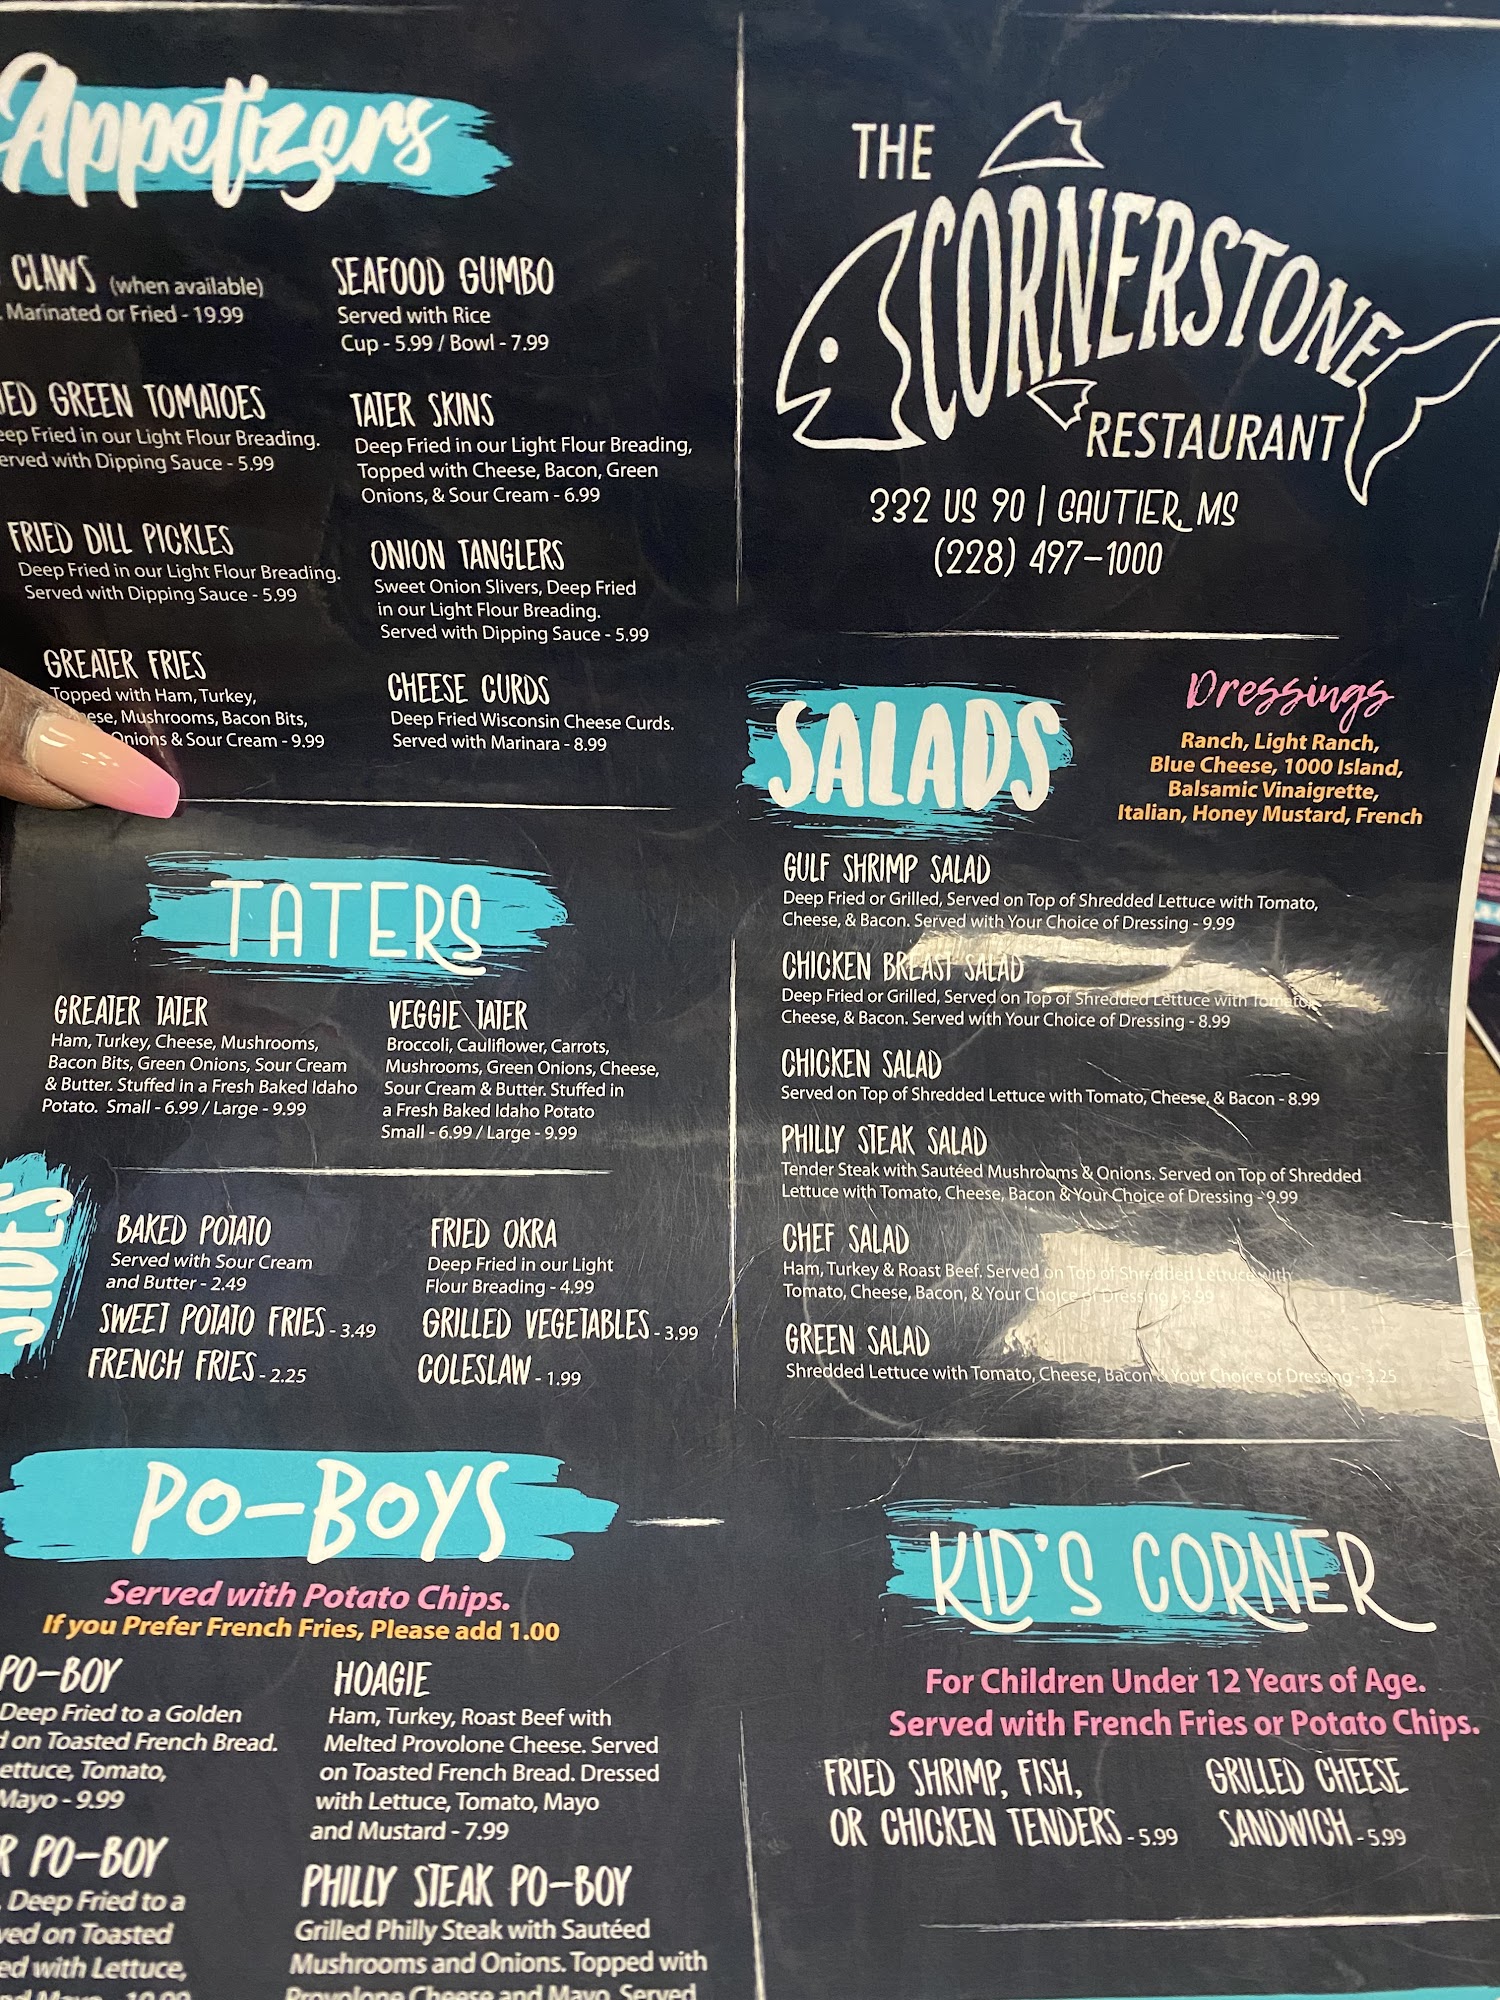 Appetizers
CLAWS (when available)
Marinated or Fried - 19.99
GREEN TOMATOES
Fried in our Light Flour Breading.
with Dipping Sauce - 5.99
FRIED DILL PICKLES
Deep Fried in our Light Flour Breading.
Served with Dipping Sauce - 5.99
GREATER FRIES
Topped with Ham, Turkey,
Mushrooms, Bacon Bits,
Onions & Sour Cream - 9.99
SEAFOOD GUMBO
Served with Rice
Cup - 5.99 / Bowl - 7.99
TATER SKINS
Deep Fried in our Light Flour Breading,
Topped with Cheese, Bacon, Green
Onions, & Sour Cream - 6.99
ONION TANGLERS
Sweet Onion Slivers, Deep Fried
in our Light Flour Breading.
Served with Dipping Sauce - 5.99
CHEESE CURDS
Deep Fried Wisconsin Cheese Curds.
Served with Marinara - 8.99
TATERS
GREATER TATER
Ham, Turkey, Cheese, Mushrooms,
Bacon Bits, Green Onions, Sour Cream
& Butter. Stuffed in a Fresh Baked Idaho
Potato. Small - 6.99 / Large - 9.99
VEGGIE TATER
Broccoli, Cauliflower, Carrots,
Mushrooms, Green Onions, Cheese,
Sour Cream & Butter. Stuffed in
a Fresh Baked Idaho Potato
Small - 6.99 / Large - 9.99
SIDES
BAKED POTATO
Served with Sour Cream
and Butter - 2.49
SWEET POTATO FRIES - 3.49
FRENCH FRIES - 2.25
FRIED OKRA
Deep Fried in our Light
Flour Breading - 4.99
GRILLED VEGETABLES - 3.99
COLESLAW - 1.99
PO-BOYS
Served with Potato Chips.
If you Prefer French Fries, Please add 1.00
PO-BOY
Deep Fried to a Golden
on Toasted French Bread.
Tomato,
Mayo - 9.99
PO-BOY
Deep Fried to a
on Toasted
with Lettuce,
HOAGIE
Ham, Turkey, Roast Beef with
Melted Provolone Cheese. Served
on Toasted French Bread. Dressed
with Lettuce, Tomato, Mayo
and Mustard - 7.99
PHILLY STEAK PO-BOY
Grilled Philly Steak with Sautéed
Mushrooms and Onions. Topped with
Provolone Cheese and Mayo. Served
THE
CORNERSTONE
RESTAURANT
332 US 90 | GAUTIER, MS
(228) 497-1000
SALADS
Dressings
Ranch, Light Ranch,
Blue Cheese, 1000 Island,
Balsamic Vinaigrette,
Italian, Honey Mustard, French
GULF SHRIMP SALAD
Deep Fried or Grilled, Served on Top of Shredded Lettuce with Tomato,
Cheese, & Bacon. Served with Your Choice of Dressing - 9.99
CHICKEN BREAST SALAD
Deep Fried or Grilled, Served on Top of Shredded Lettuce with Tomato,
Cheese, & Bacon. Served with Your Choice of Dressing - 8.99
CHICKEN SALAD
Served on Top of Shredded Lettuce with Tomato, Cheese, & Bacon - 8.99
PHILLY STEAK SALAD
Tender Steak with Sautéed Mushrooms & Onions. Served on Top of Shredded
Lettuce with Tomato, Cheese, Bacon & Your Choice of Dressing - 9.99
CHEF SALAD
Ham, Turkey & Roast Beef. Served on Top of Shredded Lettuce with
Tomato, Cheese, Bacon, & Your Choice of Dressing - 8.99
GREEN SALAD
Shredded Lettuce with Tomato, Cheese, Bacon & Your Choice of Dressing - 3.25
KID'S CORNER
For Children Under 12 Years of Age.
Served with French Fries or Potato Chips.
FRIED SHRIMP, FISH,
OR CHICKEN TENDERS - 5.99
GRILLED CHEESE
SANDWICH - 5.99